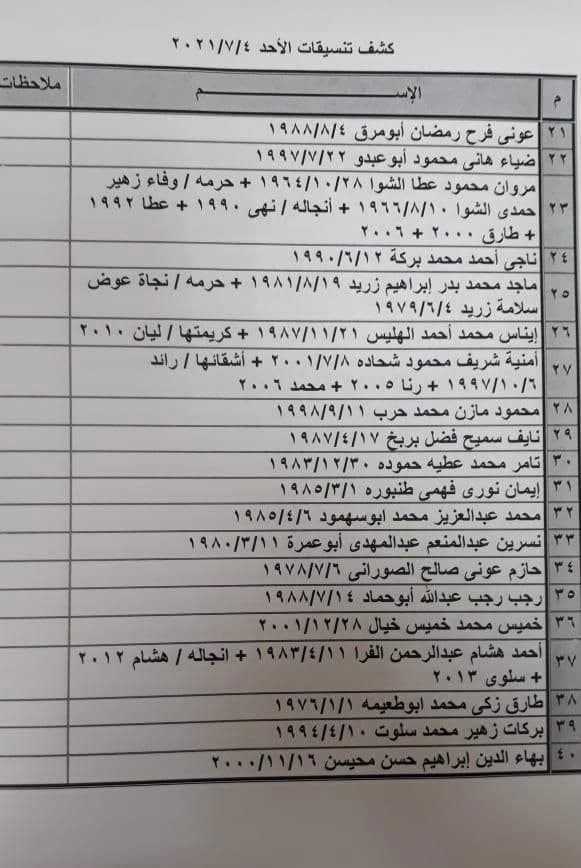 كشف تنسيقات الأحد ٢٠٢١/٧/٤
م الإســـــــــــم ملاحظات
٢١ عونى فرح رمضان أبومرق ١٩٨٨/٨/٤
٢٢ ضياء هانى محمود أبوعبدو ١٩٩٧/٧/٢٢
٢٣ مروان محمود عطا الشوا ١٩٦٤/١٠/٢٨ + حرمه / وفاء زهير
حمدى الشوا ١٩٦٦/٨/١٠ + أنجاله / نهى ١٩٩٠ + عطا ١٩٩٢
+ طارق ٢٠٠٠ + ٢٠٠٦
٢٤ ناجى أحمد محمد بركة ١٩٩٠/٦/١٢
٢٥ ماجد محمد بدر إبراهيم زريد ١٩٨١/٨/١٩ + حرمه / نجاة عوض
سلامة زريد ١٩٧٩/٦/٤
٢٦ إيناس محمد أحمد الهليس ١٩٨٧/١١/٢١ + كريمتها / ليان ٢٠١٠
٢٧ أمنية شريف محمود شحاده ٢٠٠١/٧/٨ + أشقائها / رائد
١٩٩٧/١٠/٦ + رنا ٢٠٠٥ + محمد ٢٠٠٦
٢٨ محمود مازن محمد حرب ١٩٩٨/٩/١١
٢٩ نايف سميح فضل بربخ ١٩٨٧/٤/١٧
٣٠ تامر محمد عطيه حموده ١٩٨٣/١٢/٣٠
٣١ إيمان نورى فهمى طنبوره ١٩٨٥/٣/١
٣٢ محمد عبدالعزيز محمد ابوسهمود ١٩٨٥/٤/٦
٣٣ نسرين عبدالمنعم عبدالمهدى أبوعمرة ١٩٨٠/٣/١١
٣٤ حازم عونى صالح الصورانى ١٩٧٨/٧/٦
٣٥ رجب رجب عبدالله أبوحماد ١٩٨٨/٧/١٤
٣٦ خميس محمد خميس خيال ٢٠٠١/١٢/٢٨
٣٧ أحمد هشام عبدالرحمن الفرا ١٩٨٣/٤/١١ + انجاله / هشام ٢٠١٢
+ سلوى ٢٠١٣
٣٨ طارق زكي محمد ابوطعيمه ١٩٧٦/١/١
٣٩ بركات زهير محمد سلوت ١٩٩٤/٤/١٠
٤٠ بهاء الدين إبراهيم حسن محيسن ٢٠٠٠/١١/١٦